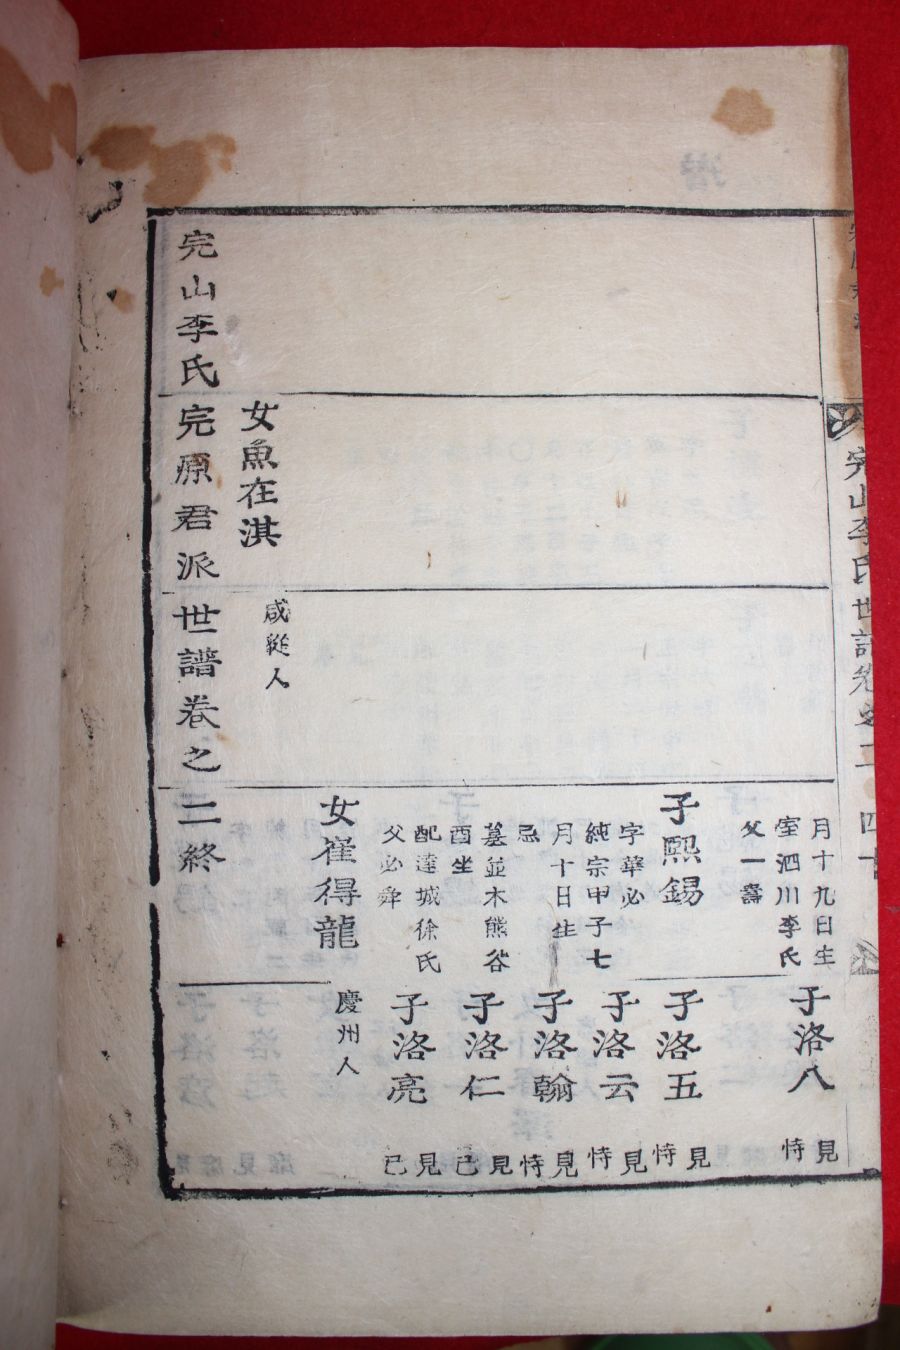 完山李氏世譜卷之二
四十
月十九日生
室泗川李氏
父一壽
子洛八
見
恃
子熙錫
字華必
純宗甲子七
月十日生
忌
墓並木熊谷
酉坐
配達城徐氏
父必舜
子洛五
見
恃
子洛云
見
恃
子洛翰
見
恃
子洛仁
見
己
子洛亮
見
己
女崔得龍
慶州人
女魚在淇
咸從人
完山李氏完原君派世譜卷之二終